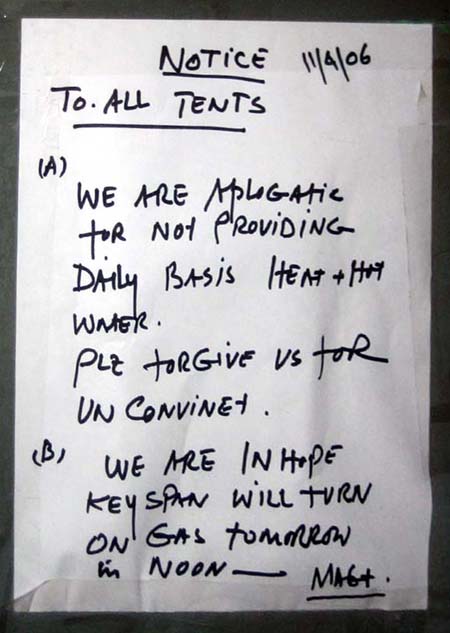 NOTICE 11/9/06
TO. ALL TENTS
(A)
WE ARE APLOGATIC
FOR NOT PROVIDING
DAILY BASIS HEAT + HOT
WATER.
PLZ FORGIVE US FOR
UN CONVINET.
(B) WE ARE IN HOPE
KEYSPAN WILL TURN
ON GAS TOMORROW
in NOON — MAGT.